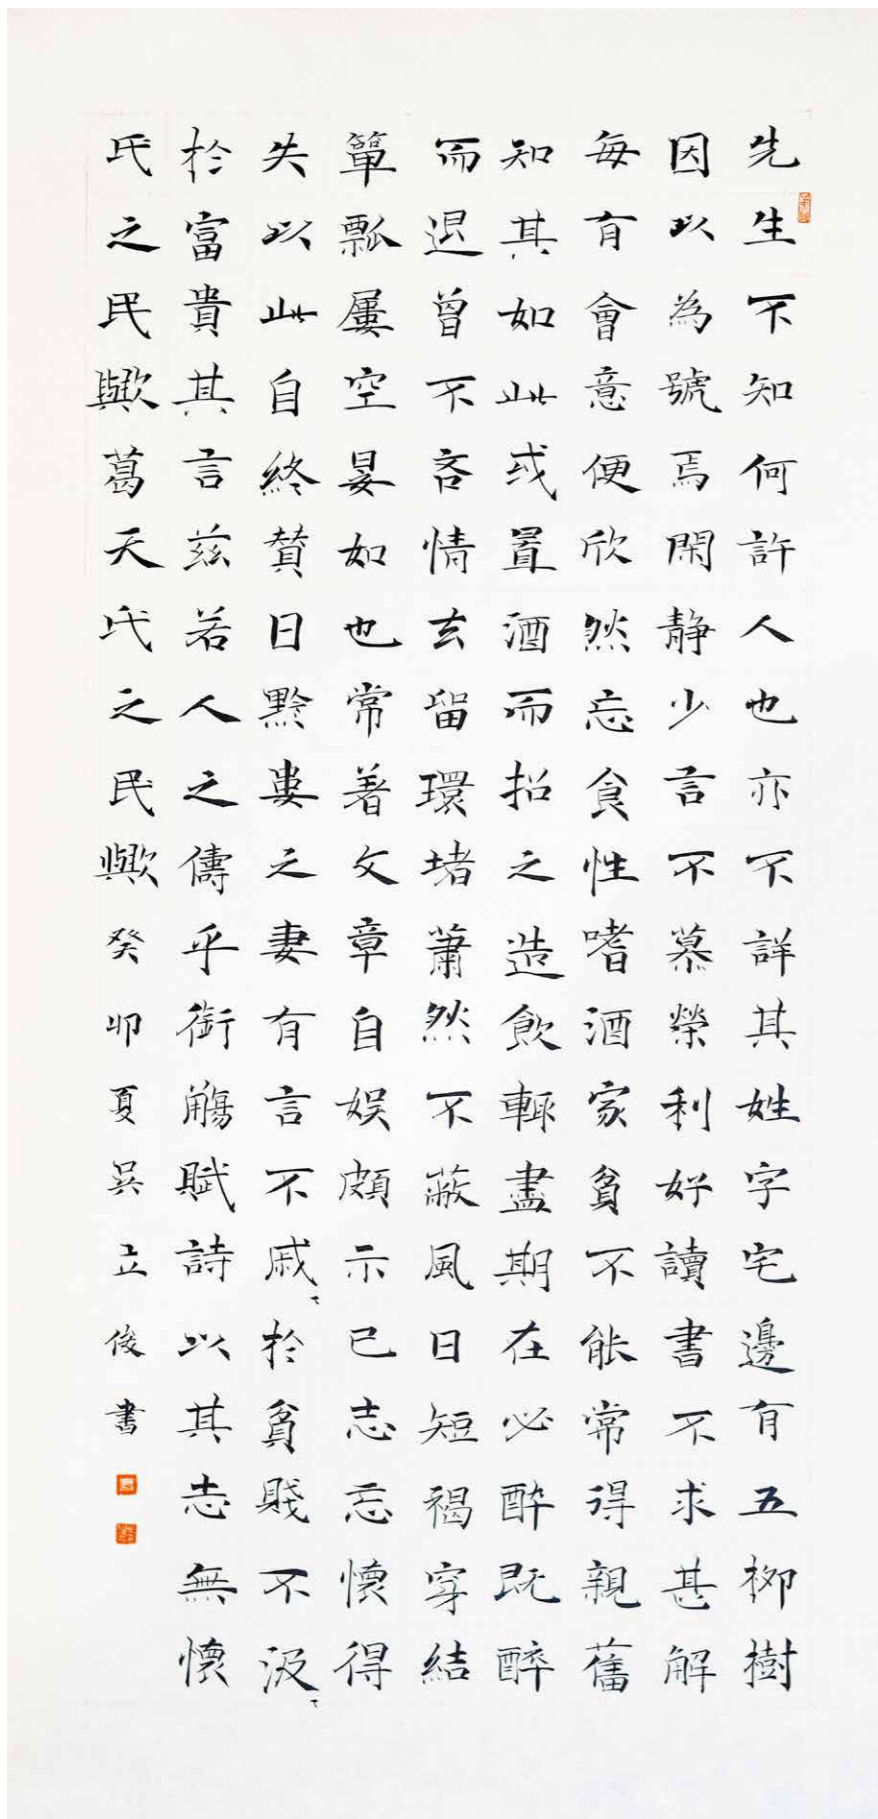 先生不知何許人也亦不詳其姓字宅邊有五柳樹
因以為號焉閑静少言不慕榮利好讀書不求甚解
每有會意便欣然忘食性嗜酒家貧不能常得親舊
知其如此或置酒而招之造飲輒盡期在必酔既醉
而退曾不吝情去留環堵蕭然不蔽風日短褐穿結
簞瓢屢空晏如也常著文章自娛頗示己志忘懷得
失以此自終贊曰黔婁之妻有言不戚〻於貧賤不汲〻
於富貴其言兹若人之儔乎銜觴賦詩以其志無懷
氏之民歟葛天氏之民歟癸卯夏吳立俊書